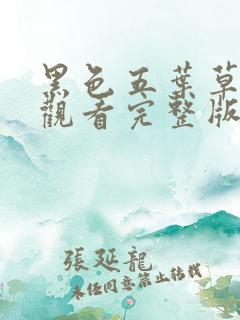 黑色五葉草
觀看完整版
張延龍
未任同意禁止轉載